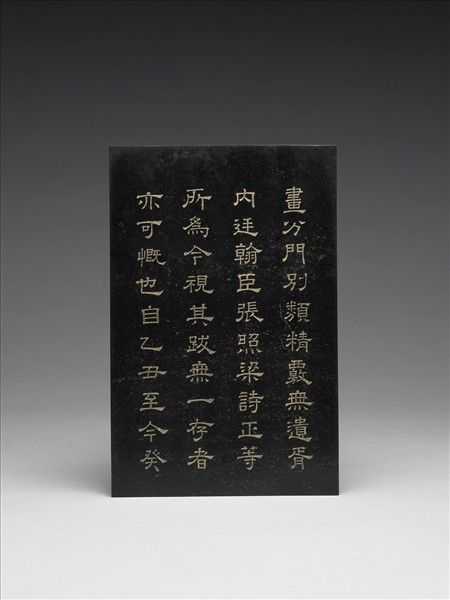 畫分門別類精覈無遺胥
内廷翰臣張照梁詩正等
所為今視其跋無一存者
亦可慨也自乙丑至今癸